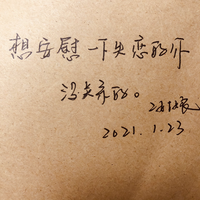 想安慰一下失恋的你
没关系的。
2021.1.23